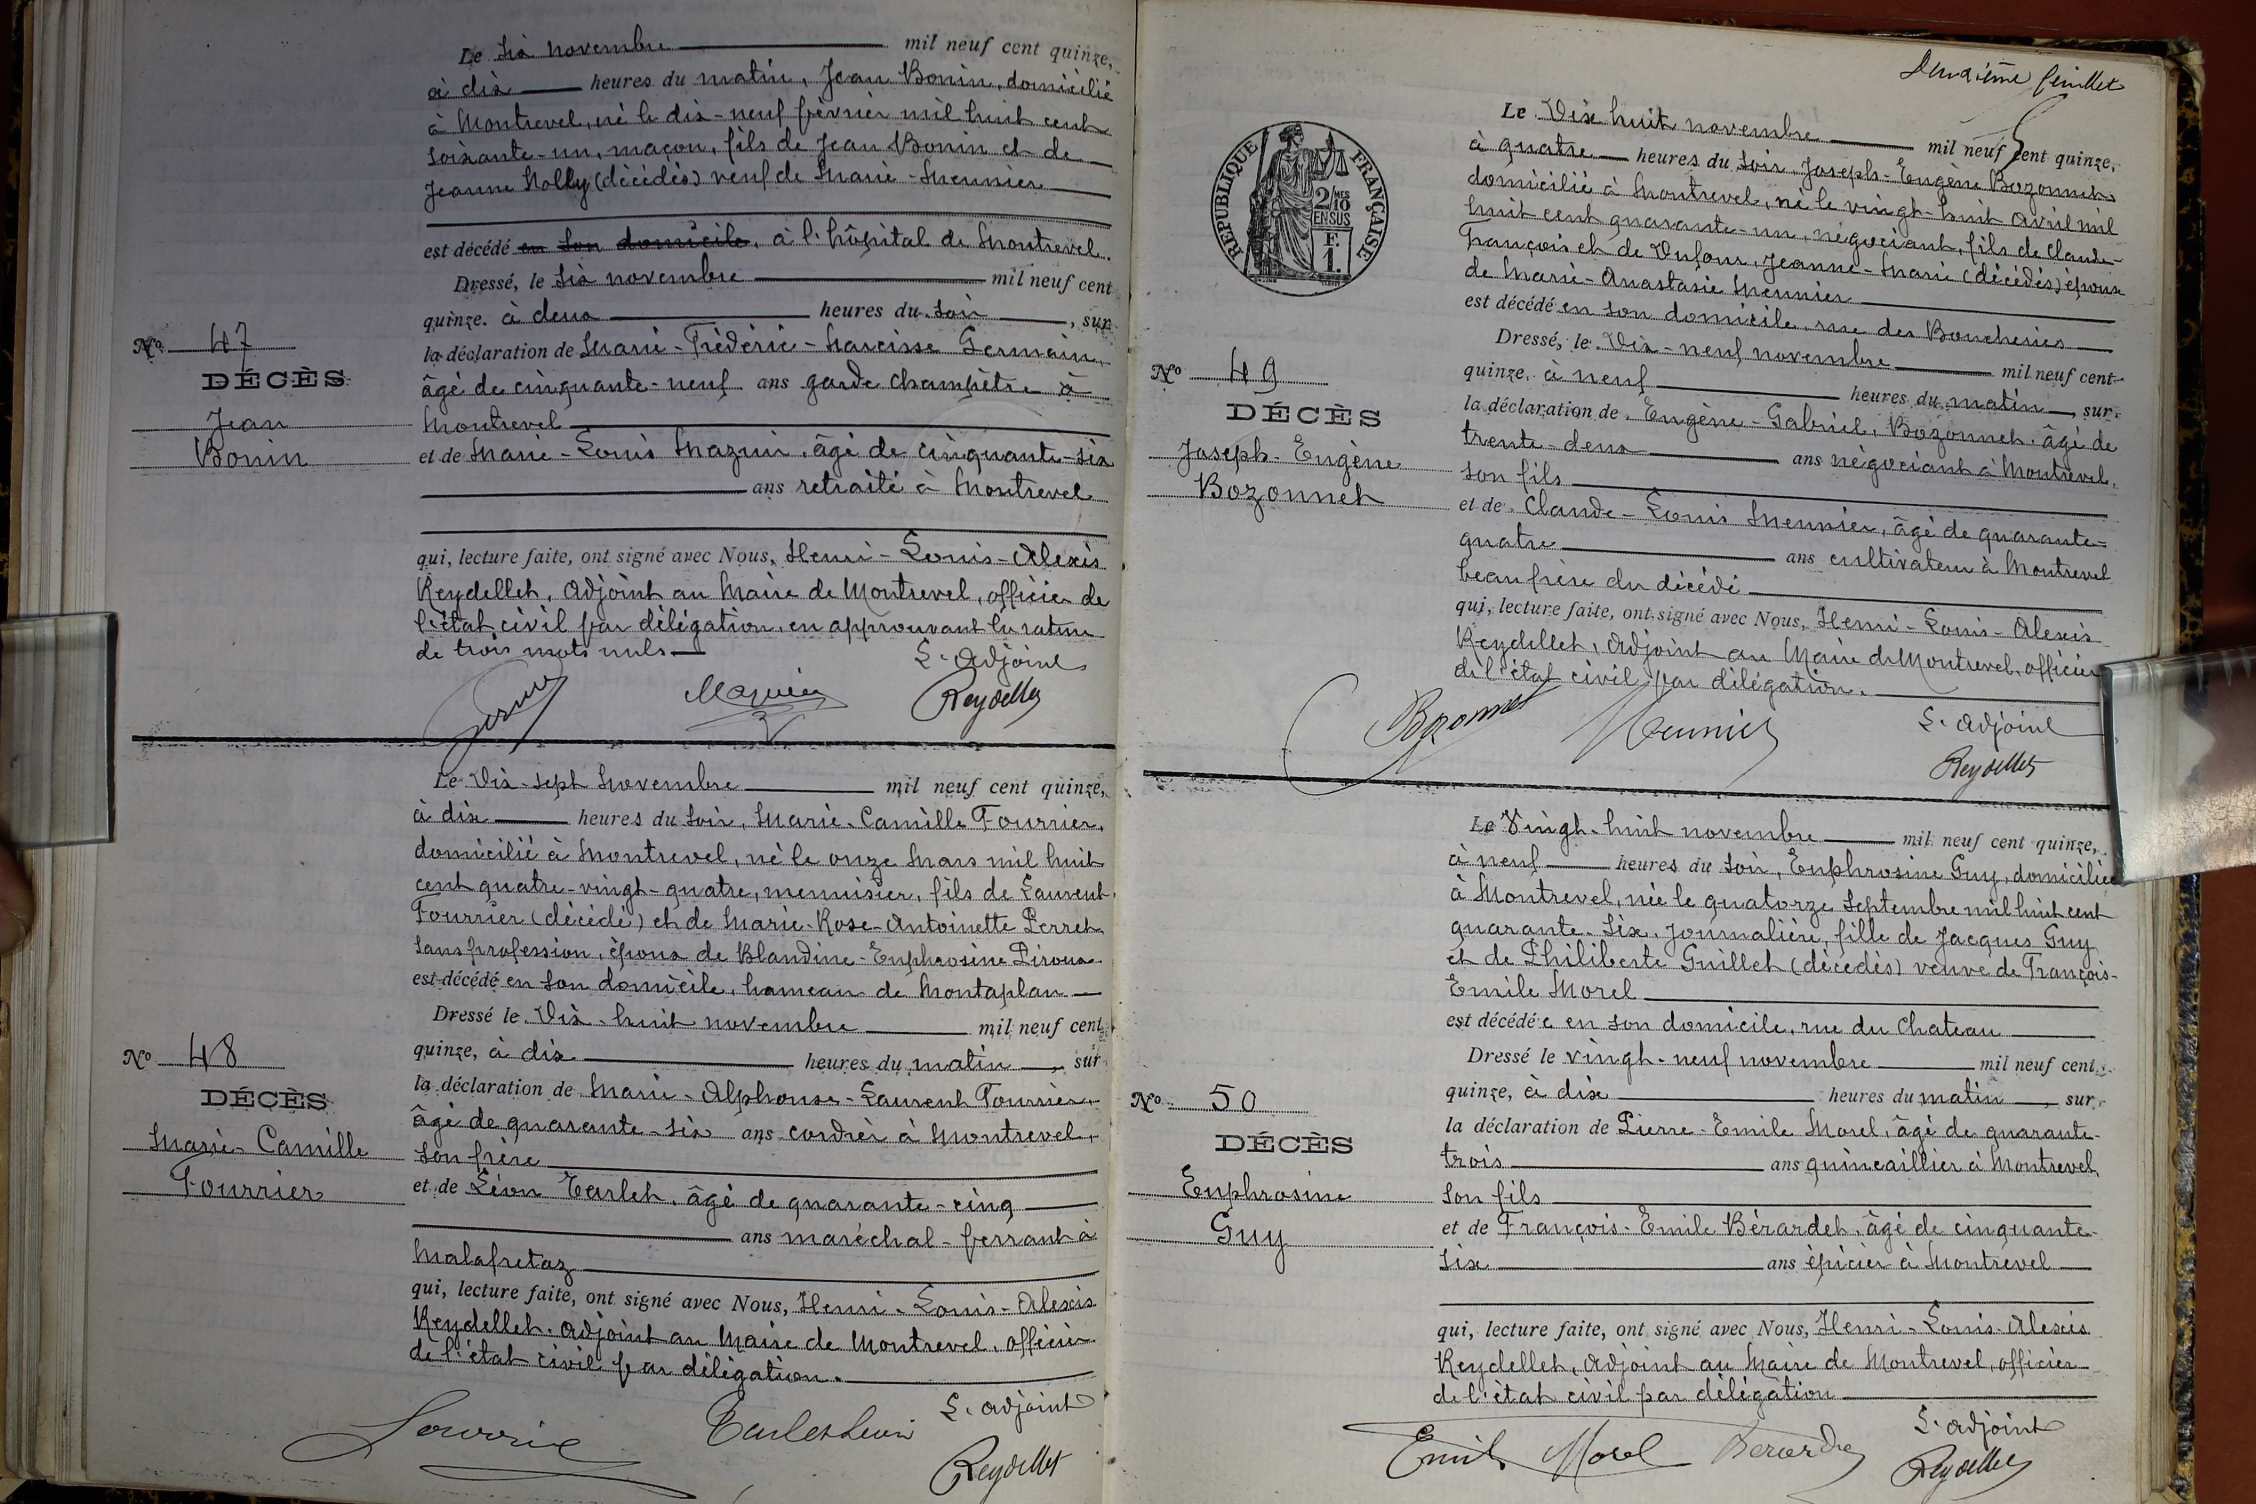 Le six novembre mil neuf cent quinze,
à dix heures du matin, Jean Bonin, domicilié
à Montrevel, né le dix-neuf février mil huit cent
soixante-un, maçon, fils de Jean Bonin et de
Jeanne (décédés) veuf de Marie-Meunier
est décédé en son domicile, à l'hôpital de Montrevel.
Dressé, le six novembre mil neuf cent
quinze. à deux heures du soir, sur
la déclaration de Marie-Frédéric-Narcisse Germain,
âgé de cinquante-neuf ans garde champêtre à
Montrevel
et de Marie-Louis Mazuir, âgé de cinquante-six
ans retraité à Montrevel
qui, lecture faite, ont signé avec Nous, Henri-Louis-Alexis
Reydellet, adjoint au Maire de Montrevel, officier de
l'état civil par délégation, en approuvant la rature
de trois mots nuls
L'adjoint
Reydellet
No 47
DÉCÈS
Jean
Bonin
Le Dix-sept Novembre mil neuf cent quinze,
à dix heures du soir, Marie-Camille Fourrier,
domicilié à Montrevel, né le onze Mars mil huit
cent quatre-vingt-quatre, menuisier, fils de Laurent
Fourrier (décédé) et de Marie-Rose-Antoinette Perret
sans profession, époux de Blandine-Euphrosine Piroux
est décédé en son domicile, hameau de Montaplan
Dressé le Dix-huit novembre mil neuf cent
quinze, à dix heures du matin, sur
la déclaration de Marie-Alphonse-Laurent Fourrier,
âgé de quarante-six ans cordier à Montrevel,
son frère
et de Léon Tarlet, âgé de quarante-cinq
ans maréchal-ferrant à
Malafretaz
qui, lecture faite, ont signé avec Nous, Henri-Louis-Alexis
Reydellet, adjoint au Maire de Montrevel, officier
de l'état civil par délégation.
L'adjoint
Reydellet
No 48
DÉCÈS
Marie-Camille
Fourrier
Deuxième feuillet
RÉPUBLIQUE FRANÇAISE
2/10
MES
EN SUS
F.
1.
Le Dix huit novembre mil neuf cent quinze,
à quatre heures du soir, Joseph-Eugène Bozonnet
domicilié à Montrevel, né le vingt-huit avril mil
huit cent quarante-un, négociant, fils de Claude-
François et de Dufour, Jeanne-Marie (décédés) époux
de Marie-Anastasie Meunier
est décédé en son domicile, rue des Boucheries
Dressé, le Dix-neuf novembre mil neuf cent
quinze, à neuf heures du matin, sur
la déclaration de Eugène-Gabriel, Bozonnet, âgé de
trente-deux ans négociant à Montrevel,
son fils
et de Claude-Louis Meunier, âgé de quarante-
quatre ans cultivateur à Montrevel
beau frère du décédé
qui, lecture faite, ont signé avec Nous, Henri-Louis-Alexis
Reydellet, adjoint au Maire de Montrevel, officier
de l'état civil par délégation.
Bozonnet Meunier L'adjoint
Reydellet
No 49
DÉCÈS
Joseph-Eugène
Bozonnet
Le Vingt-huit novembre mil neuf cent quinze,
à neuf heures du soir, Euphrosine Guy, domiciliée
à Montrevel, née le quatorze septembre mil huit cent
quarante-six, journalière, fille de Jacques Guy
et de Philiberte Guillet (décédés) veuve de François-
Emile Morel
est décédée en son domicile, rue du Chateau
Dressé le vingt-neuf novembre mil neuf cent
quinze, à dix heures du matin, sur
la déclaration de Pierre-Emile Morel, âgé de quarante-
trois ans quincaillier à Montrevel
son fils
et de François-Emile Bérardet, âgé de cinquante-
six ans épicier à Montrevel
qui, lecture faite, ont signé avec Nous, Henri-Louis-Alexis
Reydellet, adjoint au Maire de Montrevel, officier
de l'état civil par délégation
Emile Morel L'adjoint
Reydellet
No 50
DÉCÈS
Euphrosine
Guy